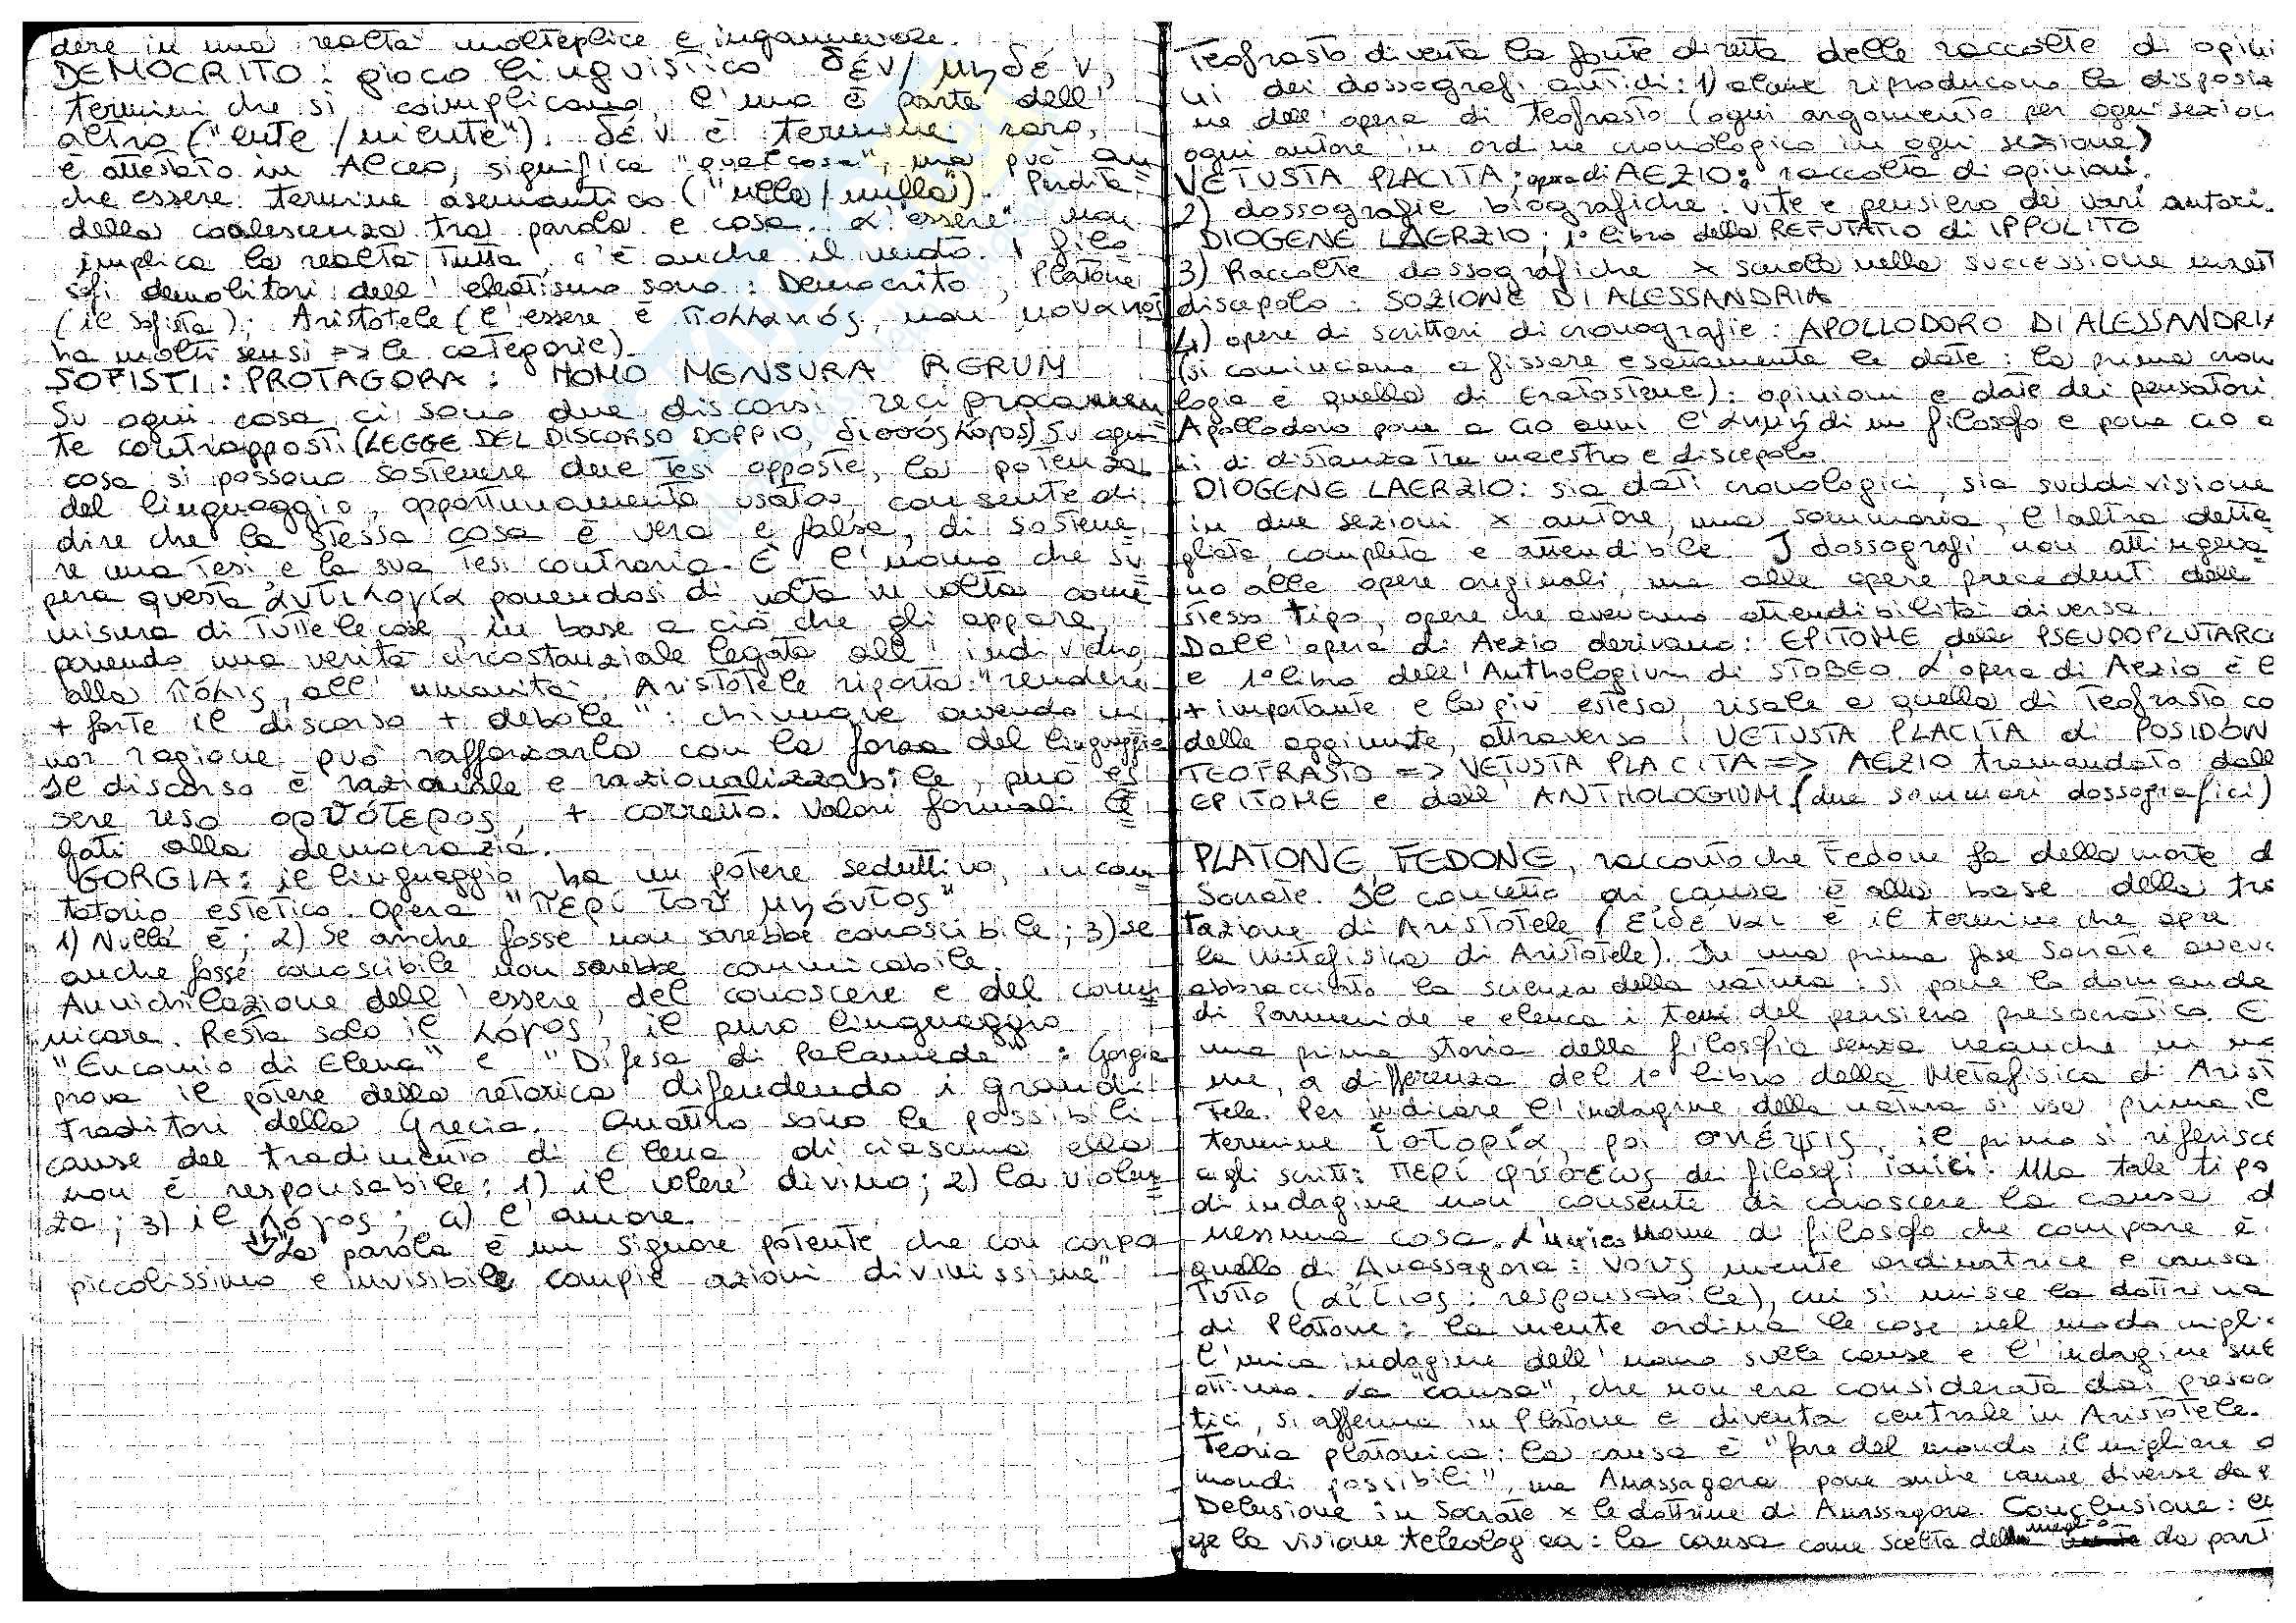 dere in una realtà molteplice e ingannevole.
DEMOCRITO: gioco linguistico δέν/μηδέν,
termini che si coimplicano, l'uno è parte dell'
altro ("ente/niente"). δέν è termine raro,
è attestato in Alceo, significa "qualcosa", ma può an
che essere termine asemantico ("ulla/nulla"). Perdita
della coalescenza tra parola e cosa. L'"essere" non
implica la realtà tutta, c'è anche il vuoto. I filo
sofi demolitori dell'eleatismo sono: Democrito; Platone
(il Sofista); Aristotele (l'essere è πολλαχός, non μοναχός
ha molti sensi => le categorie)
SOFISTI: PROTAGORA: HOMO MENSURA RERUM
Su ogni cosa ci sono due discorsi reciprocamen
te contrapposti (LEGGE DEL DISCORSO DOPPIO, δισσός λόγος) Su ogni
cosa si possono sostenere due tesi opposte, la potenza
del linguaggio, opportunamente usata, consente di
dire che la stessa cosa è vera e falsa, di sostene
re una tesi e la sua tesi contraria. È l'uomo che su
pera questa ἀντιλογία ponendosi di volta in volta come
misura di tutte le cose, in base a ciò che gli appare,
ponendo una verità circostanziale legata all'individuo,
alla πόλις, all'umanità. Aristotele riporta: "rendere
+ forte il discorso + debole": chiunque avendo mi
nor ragione può rafforzarla con la forza del linguaggio
Il discorso è razionale e razionalizzabile, può es
sere reso ορθότερος, + corretto. Valori formali le
gati alla democrazia.
GORGIA: il linguaggio ha un potere seduttivo, incan
tatorio estetico. Opera "περί τοῦ μή όντος"
1) Nulla è; 2) Se anche fosse non sarebbe conoscibile; 3) se
anche fosse conoscibile non sarebbe comunicabile.
Annichilazione dell'essere, del conoscere e del comu
nicare. Resta solo il λόγος, il puro linguaggio
"Encomio di Elena" e "Difesa di Palamede": Gorgia
prova il potere della retorica difendendo i grandi
traditori della Grecia. Quattro sono le possibili
cause del tradimento di Elena, di ciascuna ella
non è responsabile: 1) il volere divino; 2) la violen
za; 3) il λόγος; 4) l'amore.
"La parola è un signore potente che con corpo
piccolissimo e invisibile compie azioni divinissime"
Teofrasto diventa la fonte diretta delle raccolte di opini
ni dei dossografi antichi: 1) alcune riproducono la disposizio
ne dell'opera di Teofrasto (ogni argomento per ogni sezion
ogni autore in ordine cronologico in ogni sezione)
VETUSTA PLACITA; opera di AEZIO: raccolta di opinioni.
2) dossografie biografiche: vite e pensiero dei vari autori.
DIOGENE LAERZIO; 1° libro della REFUTATIO di IPPOLITO
3) Raccolte dossografiche x scuola nella successione maest
discepolo: SOZIONE DI ALESSANDRIA
4) opere di scrittori di cronografie: APOLLODORO DI ALESSANDRIA
(si cominciano a fissare esattamente le date: la prima crono
logia è quella di Eratostene): opinioni e date dei pensatori.
Apollodoro pone a 40 anni l'ἀκμή di un filosofo e pone 40 a
ni di distanza tra maestro e discepolo.
DIOGENE LAERZIO: sia dati cronologici, sia suddivisione
in due sezioni x autore, una sommaria, l'altra detta
gliata, completa e attendibile. I dossografi non attingeva
no alle opere originali, ma alle opere precedenti dello
stesso tipo, opere che avevano attendibilità diversa.
Dall'opera di Aezio derivano: EPITOME dello PSEUDOPLUTARCO
e 1° libro dell'Anthologium di STOBEO. L'opera di Aezio è l
+ importante e la più estesa, risale a quella di Teofrasto, co
delle aggiunte, attraverso i VETUSTA PLACITA di POSIDON
TEOFRASTO => VETUSTA PLACITA => AEZIO tramandato dall
EPITOME e dall'ANTHOLOGIUM (due sommari dossografici)
PLATONE, FEDONE, racconto che Fedone fa della morte d
Socrate. Il concetto di causa è alla base della trat
tazione di Aristotele (εἰδέναι è il termine che apre
la Metafisica di Aristotele). In una prima fase Socrate aveva
abbracciato la scienza della natura: si pone la domanda
di Parmenide e elenca i temi del pensiero presocratico. È
una prima storia della filosofia senza neanche un no
me, a differenza del 1° libro della Metafisica di Aristo
tele. Per indicare l'indagine della natura si usa prima il
termine ἱστορία, poi σκέψις, il primo si riferisce
agli scritti περί φύσεως dei filosofi ionici. Ma tale tipo
di indagine non consente di conoscere la causa d
nessuna cosa. L'unico nome di filosofo che compare è
quello di Anassagora: νοῦς mente ordinatrice e causa
tutto (αἴτιος: responsabile), cui si unisce la dottrina
di Platone: la mente ordina le cose nel modo miglio
l'unica indagine dell'uomo sulle cause e l'indagine sull
ottimo. La "causa", che non era considerata dai presoc
tici, si afferma in Platone e diventa centrale in Aristotele.
Teoria platonica: la causa è "fare del mondo il migliore d
mondi possibili", ma Anassagora pone anche cause diverse da q
Delusione in Socrate x le dottrine di Anassagora. Conclusione: e
ge la visione teleologica: la causa come scelta del meglio da part